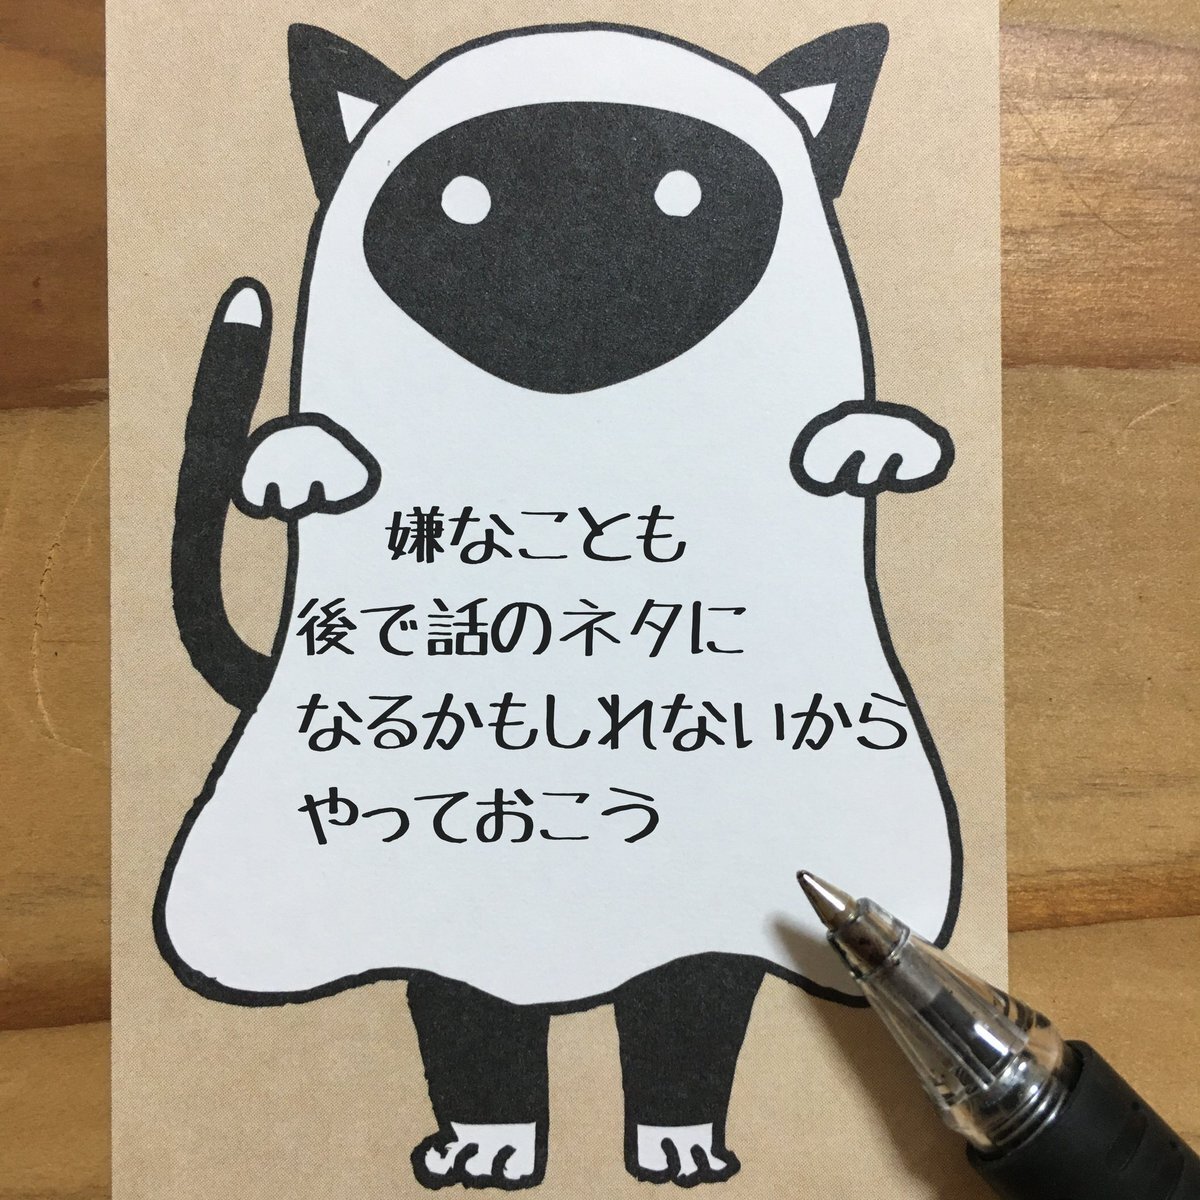 嫌なことも
後で話のネタに
なるかもしれないから
やっておこう